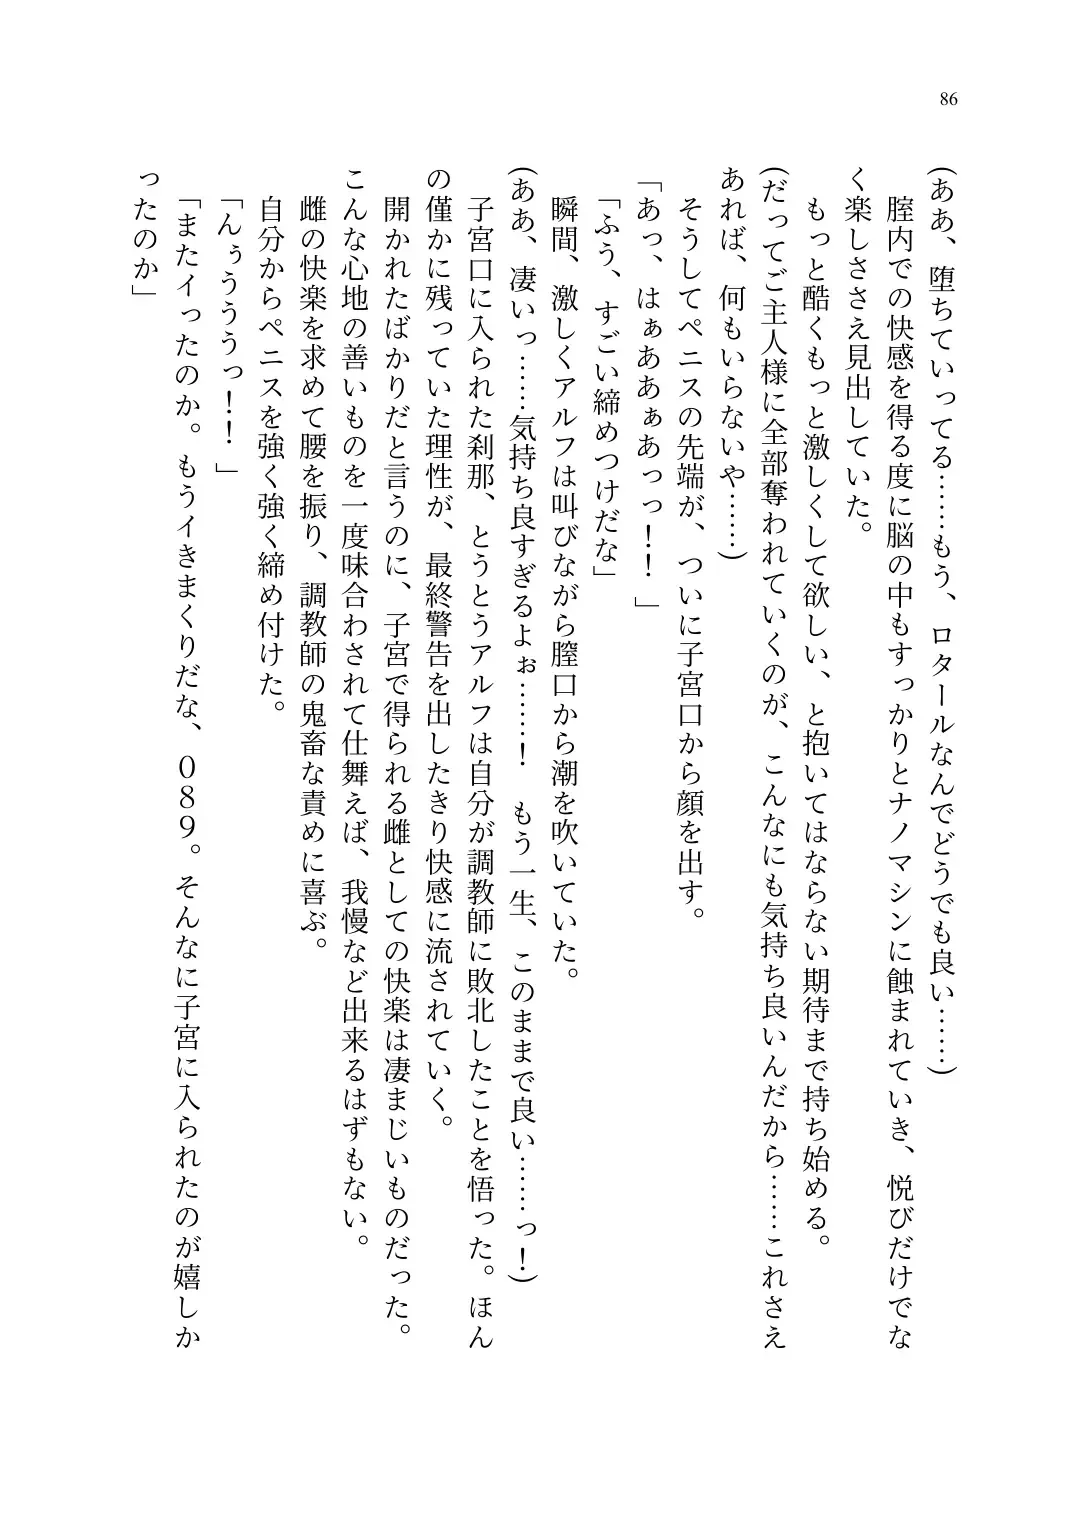 86
(ああ、堕ちていってる……もう、ロタールなんでどうでも良い……)
　膣内での快感を得る度に脳の中もすっかりとナノマシンに蝕まれていき、悦びだけでな
く楽しささえ見出していた。
　もっと酷くもっと激しくして欲しい、と抱いてはならない期待まで持ち始める。
(だってご主人様に全部奪われていくのが、こんなにも気持ち良いんだから……これさえ
あれば、何もいらないや……)
　そうしてペニスの先端が、ついに子宮口から顔を出す。
「あっ、はぁああぁあっっ!!」
「ふう、すごい締めつけだな」
　瞬間、激しくアルフは叫びながら膣口から潮を吹いていた。
(ああ、凄いっ……気持ち良すぎるよぉ……!　もう一生、このままで良い……っ!)
　子宮口に入られた刹那、とうとうアルフは自分が調教師に敗北したことを悟った。ほん
の僅かに残っていた理性が、最終警告を出したきり快感に流されていく。
　開かれたばかりだと言うのに、子宮で得られる雌としての快楽は凄まじいものだった。
こんな心地の善いものを一度味合わされて仕舞えば、我慢など出来るはずもない。
　雌の快楽を求めて腰を振り、調教師の鬼畜な責めに喜ぶ。
　自分からペニスを強く強く締め付けた。
「んぅううっ!!」
「またイったのか。もうイきまくりだな、０８９。そんなに子宮に入られたのが嬉しか
ったのか」